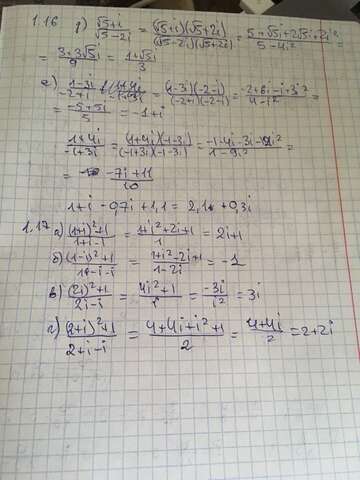 1.16 д) (√5+i)/(√5-2i) = (√5+i)(√5+2i)/(√5-2i)(√5+2i) = (5+√5i+2√5i+2i²)/(5-4i²) =
= (3+3√5i)/9 = (1+√5i)/3
е) (1-3i)/(-2+i) + (1+4i)/(-1+3i) (1-3i)(-2-i)/(-2+i)(-2-i) = (-2+6i-i+3i²)/(4-i²) =
= (-5+5i)/5 = -1+i
(1+4i)/(-1+3i) = (1+4i)(-1-3i)/(-1+3i)(-1-3i) = (-1-4i-3i-12i²)/(1-9i²) =
= (-7i+11)/10
1+i-0,7i+1,1 = 2,1+0,3i
1.17 а) ((1+i)²+1)/(1+i-i) = (1+i²+2i+1)/1 = 2i+1
б) ((1-i)²+1)/(1-i-i) = (1+i²-2i+1)/(1-2i) = -1
в) ((2i)²+1)/(2i-i) = (4i²+1)/i = -3i/i² = 3i
г) ((2+i)²+1)/(2+i-i) = (4+4i+i²+1)/2 = (4+4i)/2 = 2+2i